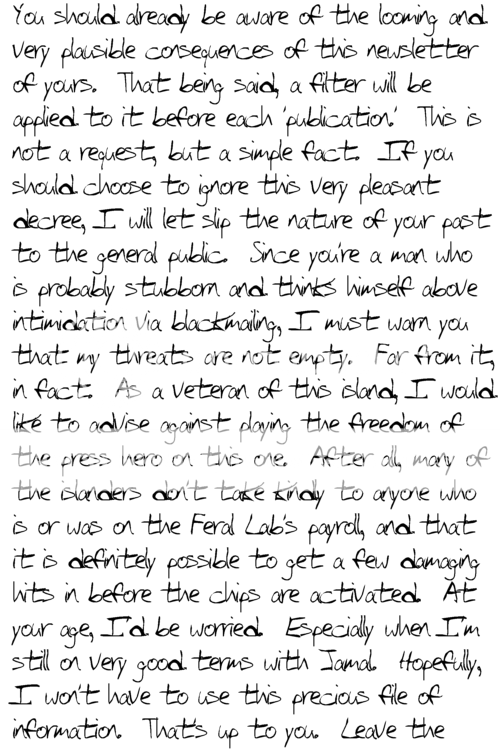 You should already be aware of the looming and
very plausible consequences of this newsletter
of yours. That being said, a filter will be
applied to it before each 'publication.' This is
not a request, but a simple fact. If you
should choose to ignore this very pleasant
decree, I will let slip the nature of your past
to the general public. Since you're a man who
is probably stubborn and thinks himself above
intimidation via blackmailing, I must warn you
that my threats are not empty. Far from it,
in fact. As a veteran of this island, I would
like to advise against playing the freedom of
the press hero on this one. After all, many of
the islanders don't take kindly to anyone who
is or was on the Feral Lab's payroll, and that
it is definitely possible to get a few damaging
hits in before the chips are activated. At
your age, I'd be worried. Especially when I'm
still on very good terms with Jamal. Hopefully,
I won't have to use this precious file of
information. That's up to you. Leave the